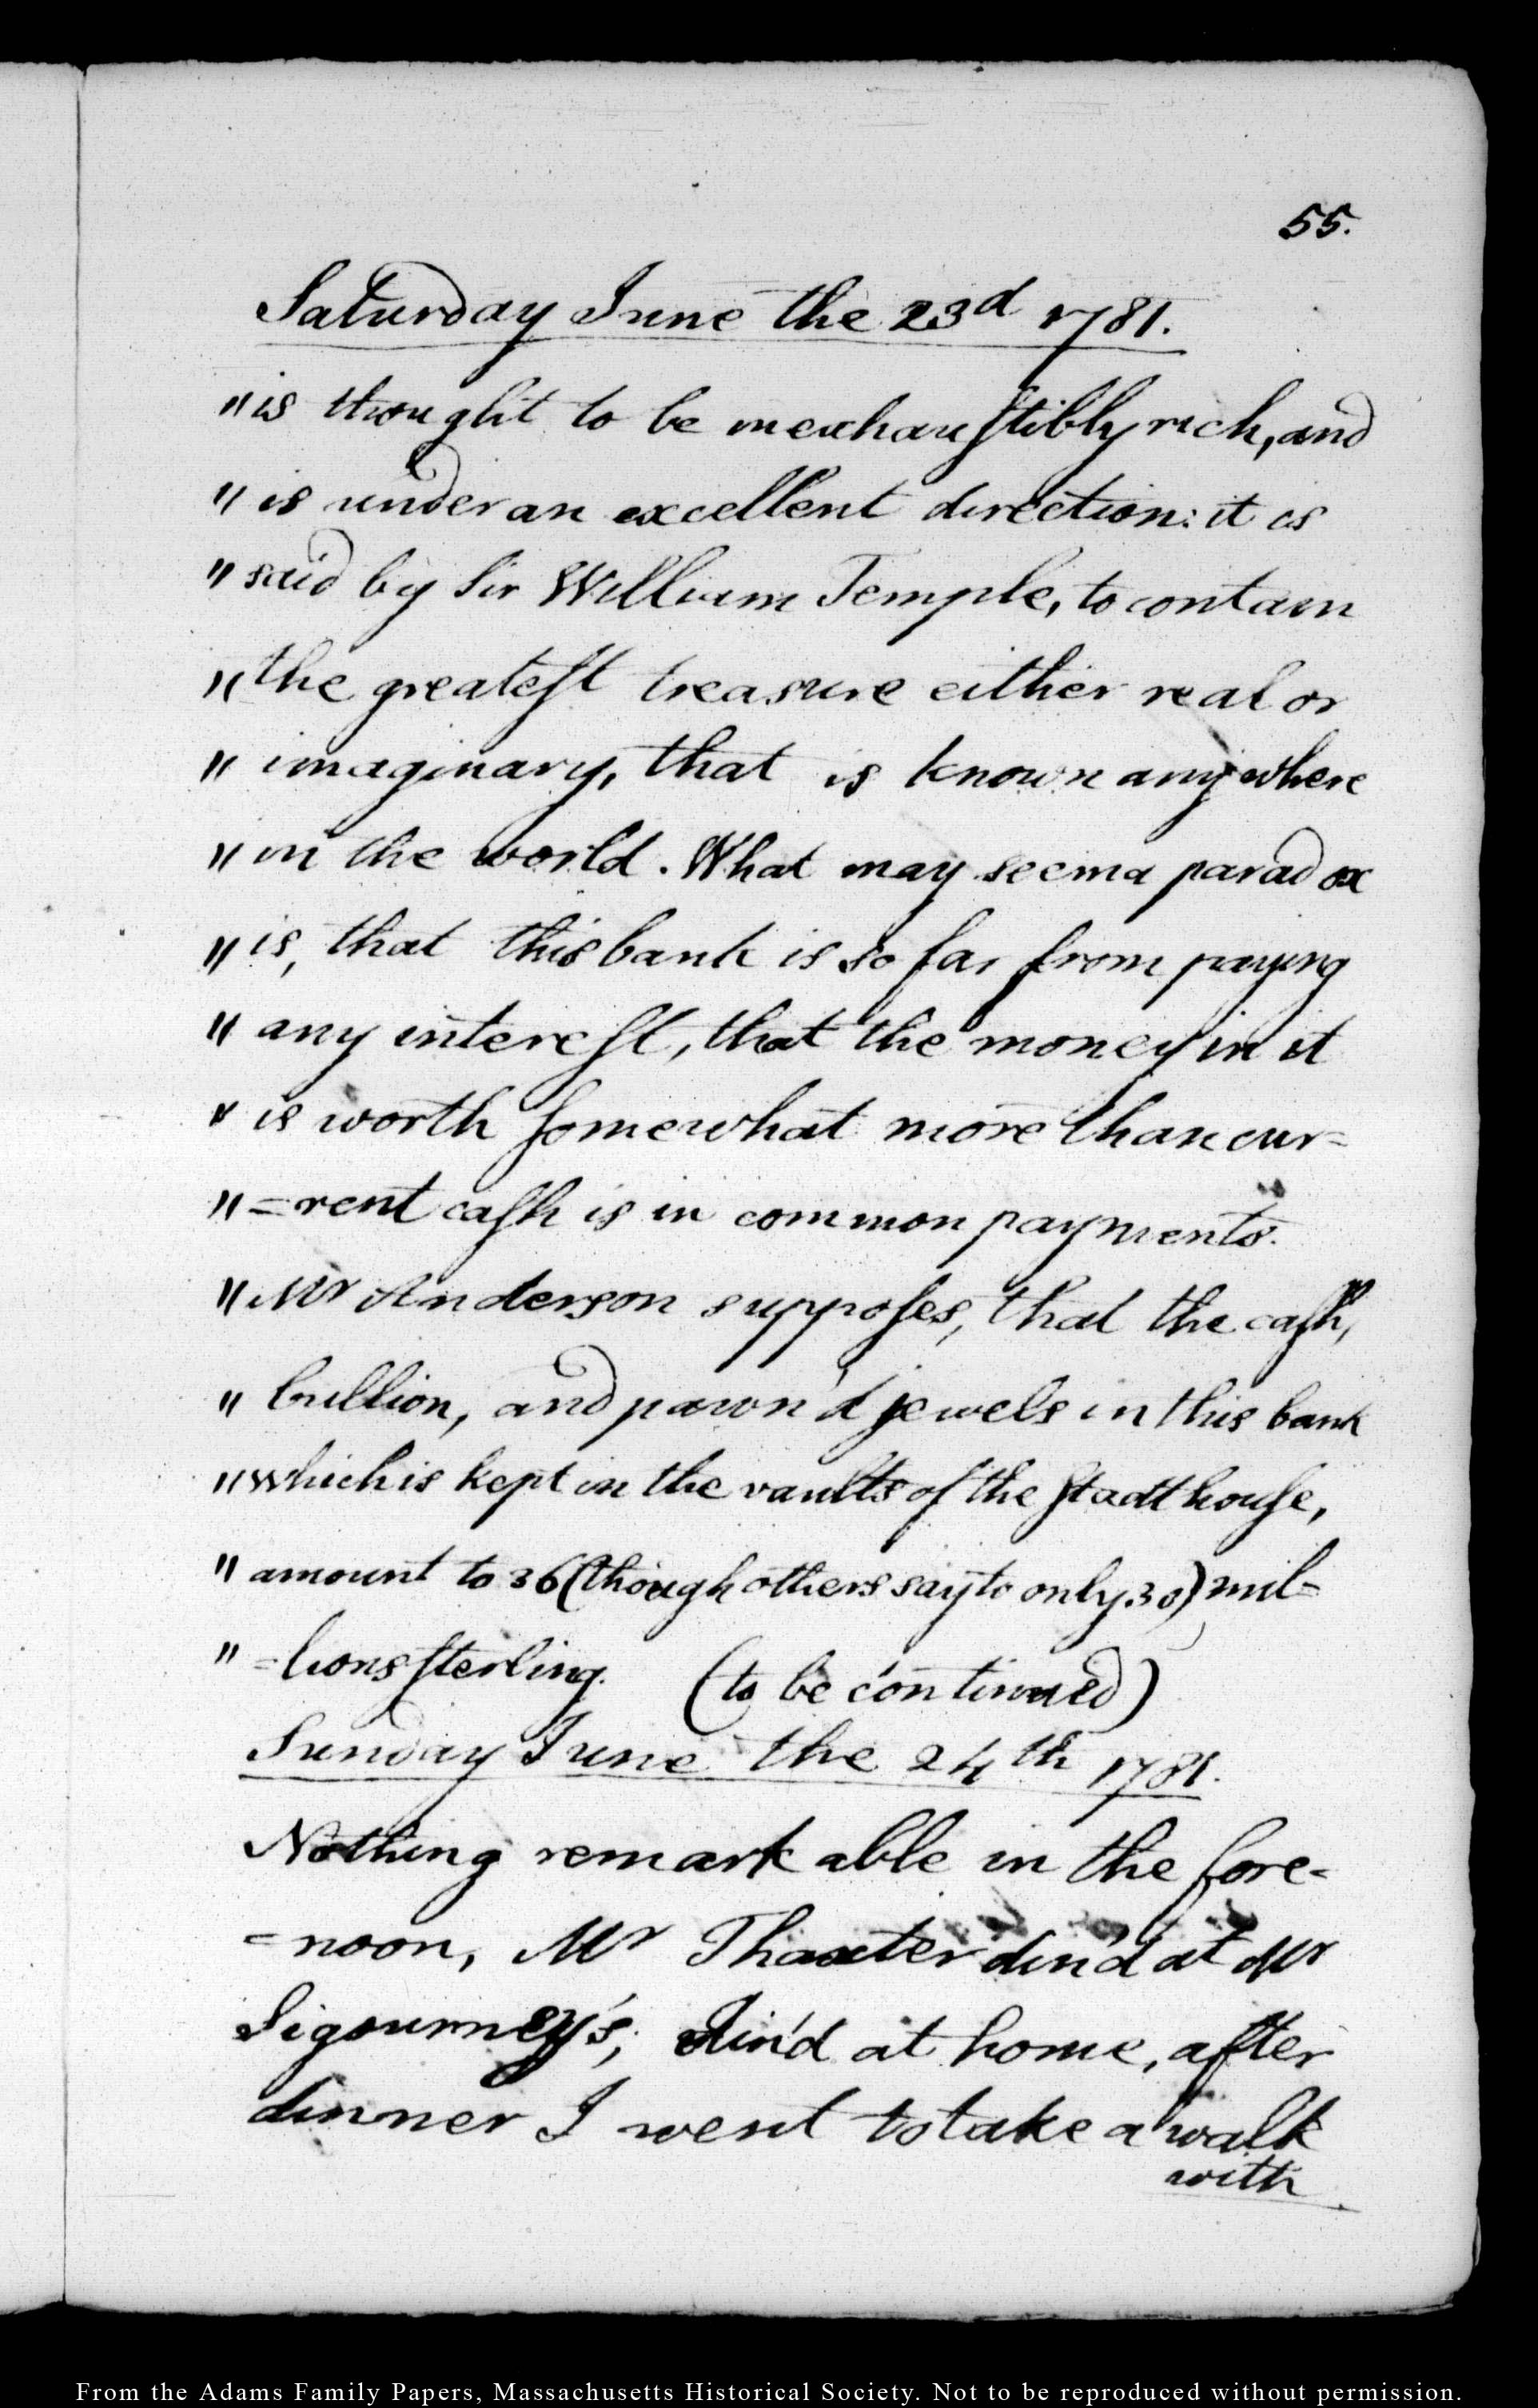 55.
Saturday June the 23d 1781.
"is thought to be inexhaustibly rich, and
"is under an excellent direction: it is
"said by Sir William Temple, to contain
"the greatest treasure either real or
"imaginary, that is known any where
"in the world. What may seem a paradox
"is, that this bank is so far from paying
"any interest, that the money in it
"is worth somewhat more than cur=
"=rent cash is in common payments.
"Mr Anderson supposes, that the cash,
"bullion, and pawn'd jewels in this bank
"which is kept in the vaults of the stadthouse,
"amount to 36 (though others say to only 30) mil=
"=lions sterling. (to be continued)
Sunday June the 24th 1781.
Nothing remarkable in the fore=
=noon, Mr Thaxter din'd at Mr
Sigourney's; din'd at home, after
dinner I went to take a walk
with
From the Adams Family Papers, Massachusetts Historical Society. Not to be reproduced without permission.